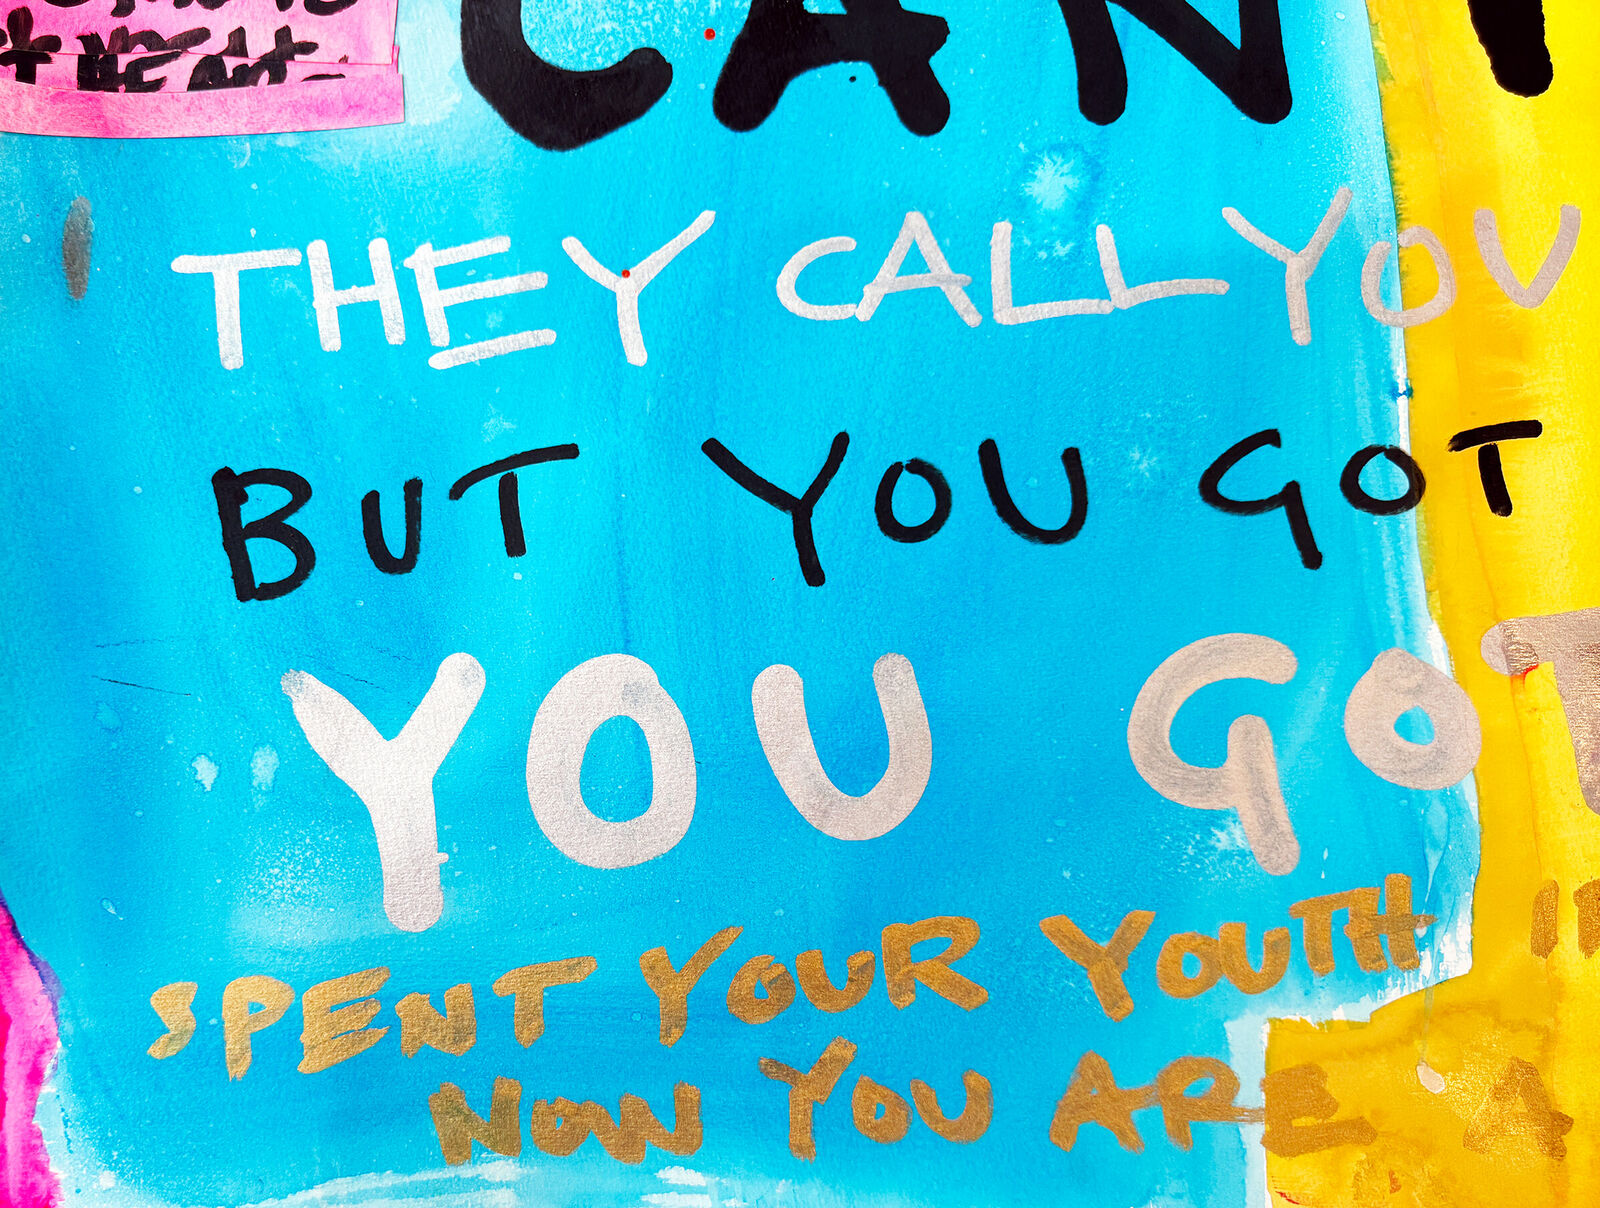 CAN'T
THEY CALL YOU
BUT YOU GOT
YOU GOT
SPENT YOUR YOUTH
NOW YOU ARE A